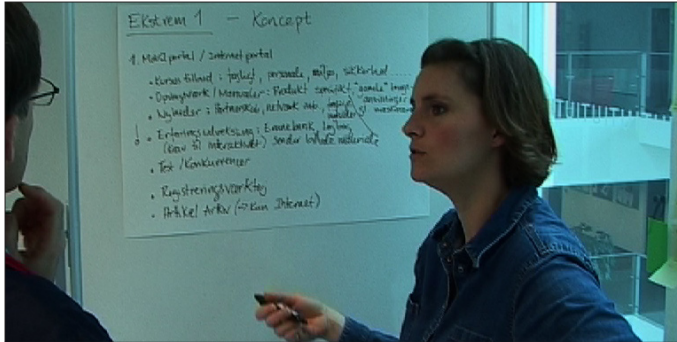 Ekstrem 1 - Koncept
1. Mobil portal / Internet portal
• Kursus tilbud : fagligt, personale, miljø, sikkerhed .....
• Opslagsværk / Manualer : Produkt
• Nyheder : Partnerskab, netværk
! • Erfaringsudveksling : Emnebank,
(krav til interaktivitet) sender
• Test / Konkurrencer
• Registreringsværktøj
• Artikel Arkiv (→ Kun Internet)